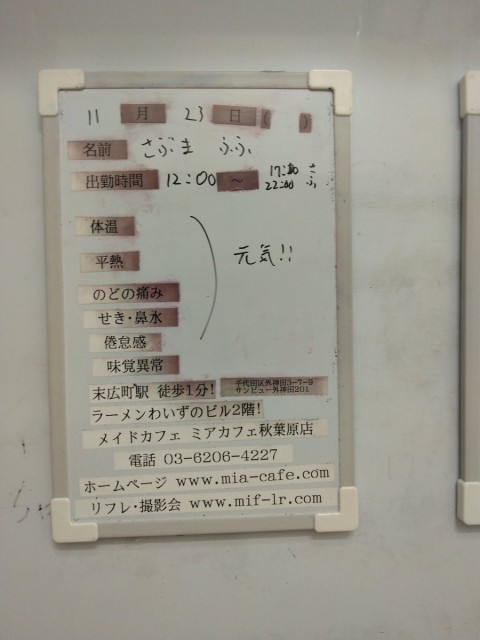 11 月 23 日 ( )
名前 さぶま ふふ
出勤時間 12:00 ～ 17:30 さ
22:00 ふ
体温
平熱
元気!!
のどの痛み
せき・鼻水
倦怠感
味覚異常
末広町駅 徒歩1分! 千代田区外神田3-7-9
サンビュー外神田201
ラーメンわいずのビル2階!
メイドカフェ ミアカフェ秋葉原店
電話 03-6206-4227
ホームページ www.mia-cafe.com
リフレ・撮影会 www.mif-lr.com